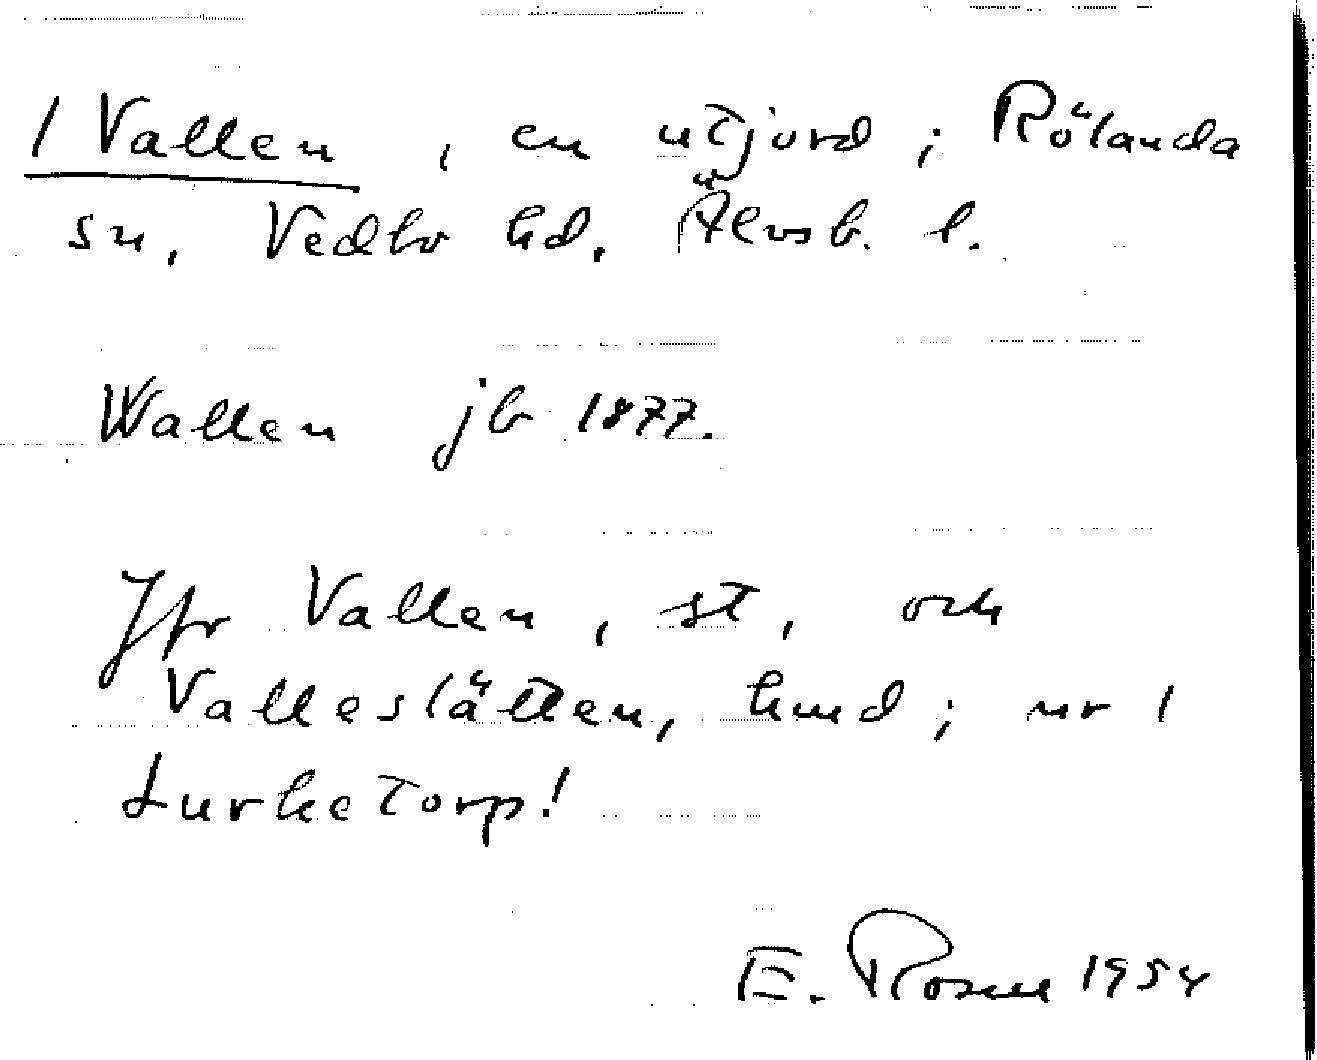 1 Vallen, en utjord i Rölanda
sn, Vedbo hd, Älvsb. l.
Wallen jb 1877.
Jfr Vallen, st, och
Valleslätten, hmd, i nr 1
Lurketorp!
E. Rosell 1954